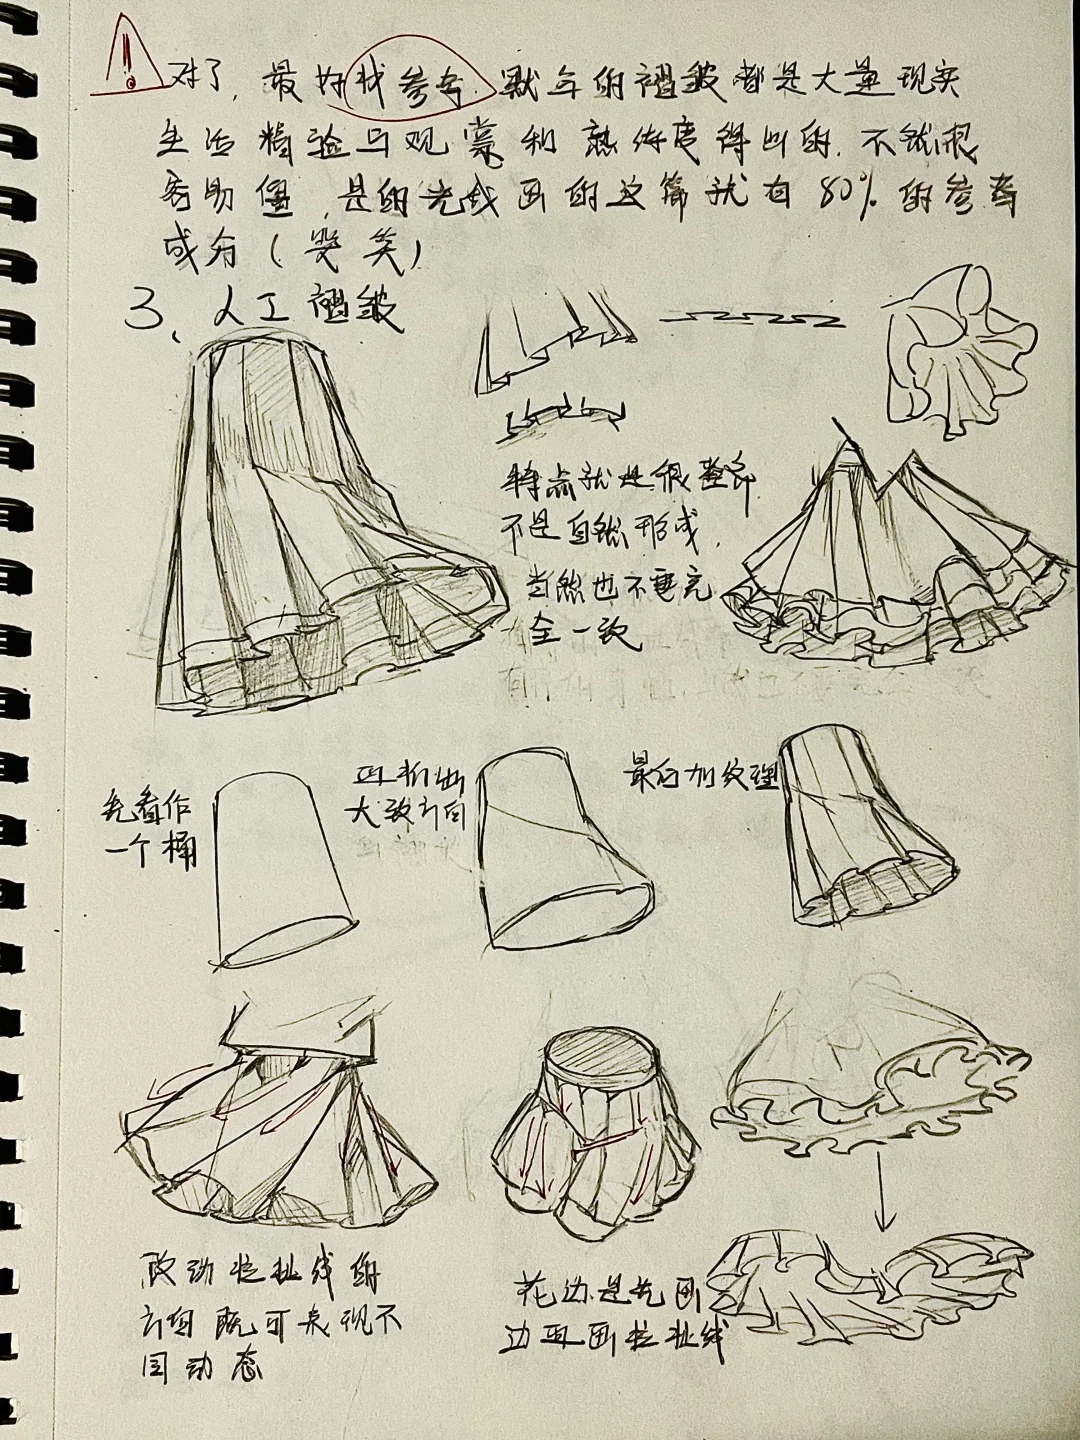 !! 对了, 最好找参考. 默写的褶皱都是大量现实
生活精验与观察和熟练度得出的. 不然很
容易僵, 是的先战画的这篇就有80%的参考
成分(哭笑)
3、人工褶皱
特点就是很整齐
不是自然形成,
当然也不要完
全一致
先看作
一个桶
再抓出
大致方向
最后加纹理
改动拉扯线的
方向既可表现不
同动态
花边是先画
边再画拉扯线